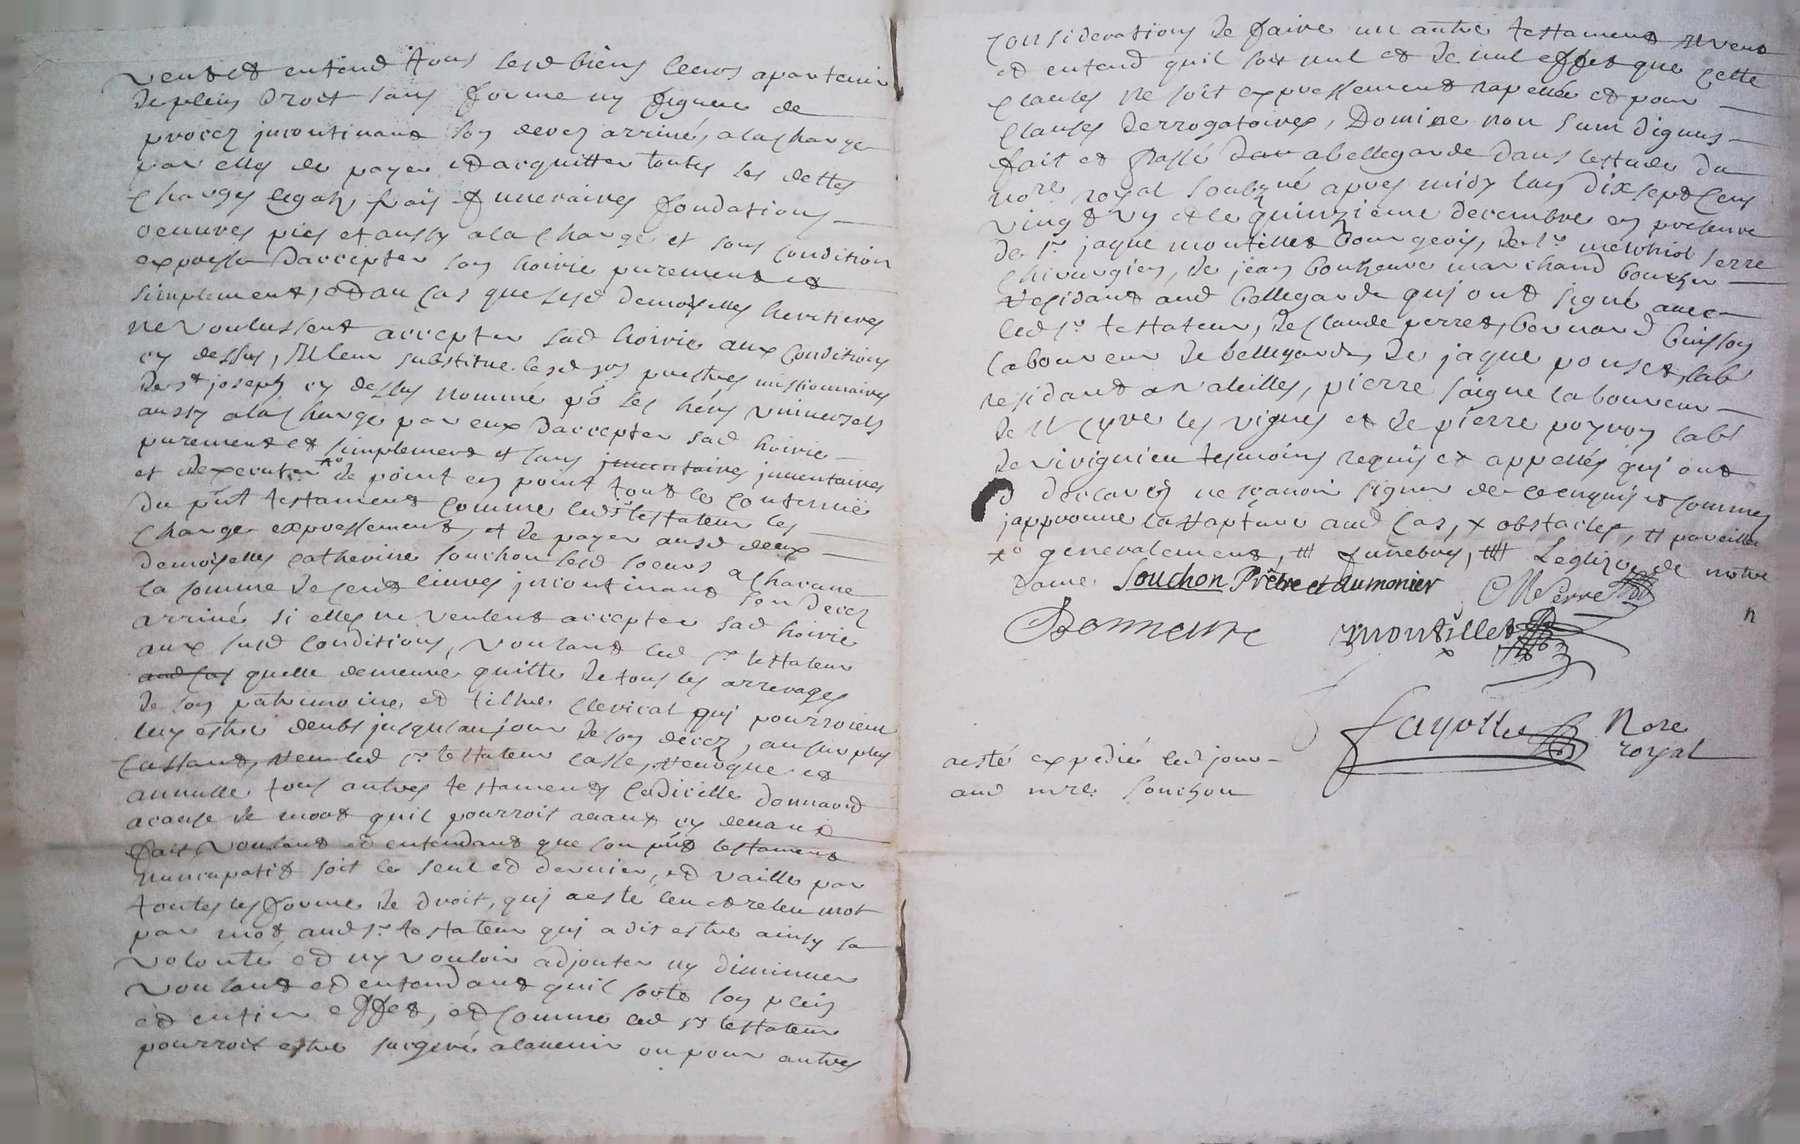 veut et entend tous lesd biens leurs apartenir
de plein droit sans forme ny figure de
procez incontinant son decez arrivé, a la charge
par elles de payer et acquitter toutes les dettes
charges legatz frais funeraires fondations
oeuvres pies et aussy a la charge et sous condition
expresse daccepter son hoirie purement et
simplement, et au cas que lesd demoiselles heritieres
ne voulussent accepter sad hoirie aux conditions
cy dessus, Il leur substitue lesd prestres missionnaires
de st joseph cy dessus nommé pō ses hers universels
aussy a la charge par eux daccepter sad hoirie
purement et simplement et sans inventaires
et dexecuter de point en point tout le contenu
du pnt testament comme led sr testateur les
charge expressement, et de payer ausd deux
demoiselles catherine souchon lesd soeurs a chacune
la somme de cent livres incontinant son decez
arrivé si elles ne veulent accepter sad hoirie
aux susd conditions, voulant led sr testateur
quelle demeure quitte de tous les arrerages
de son patrimoine et tiltre clerical qui pourroient
luy estre deubs jusqu'au jour de son decez, au surplus
cassant, led sr testateur casse, revoque et
annulle tous autres testaments codicille donnaōn
a cause de mort quil pourroit avant cy devant
fait voulant et entendant que son pnt testament
nuncupatif soit le seul et dernier, et vaille par
toutes les forme de droit, qui a esté leu et releu mot
par mot aud sr testateur qui a dit estre ainsy sa
volonté et ny vouloir adjouter ny diminuer
voulant et entendant quil sorte son plein
et entier effet, et comme led sr testateur
pourroit estre sugeré a l'avenir ou pour autres
considerations de faire un autre testament Il veut
et entend quil soit nul et de nul effet que cette
clauses ne soit expressement rapellée et pour
clauses derrogatoires, Domine non sum dignus
fait et passé a bellegarde dans lestude du
nore royal soubzné apres midy lan dix sept cens
vingt un et le quinzieme decembre en presence
de sr jaque montillet bourgeois, de sr melchiol serre
chirurgien, de jean bonheure marchand boucher
residant aud bellegarde qui ont signé avec
led sr testateur, de claude perret, bernard buisson
laboureur de bellegarde, de jaque poncet, labr
residant a aveilles, pierre saigne laboureur
de st cyre les vignes et de pierre poyroy labr
de virignieu tesmoins requis et appellés qui ont
declaré ne sçavoir signer de ce enquis et sommes
japprouve la rapture aud cas, x obstacles, tt pareilles
xo generalement, ttt funebres, tttt Leglize de notre
dame. Souchon Prêtre et Aumonier M Serre
Bonneure montillet
Fayolle Nore
royal
a esté expedié led jour
aud mre Souchon